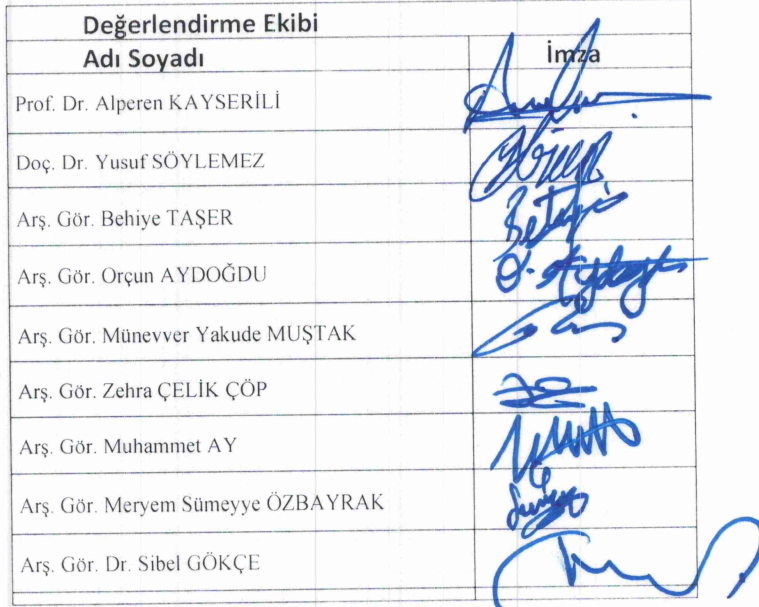 Değerlendirme Ekibi
Adı Soyadı İmza
Prof. Dr. Alperen KAYSERİLİ
Doç. Dr. Yusuf SÖYLEMEZ
Arş. Gör. Behiye TAŞER
Arş. Gör. Orçun AYDOĞDU
Arş. Gör. Münevver Yakude MUŞTAK
Arş. Gör. Zehra ÇELİK ÇÖP
Arş. Gör. Muhammet AY
Arş. Gör. Meryem Sümeyye ÖZBAYRAK
Arş. Gör. Dr. Sibel GÖKÇE